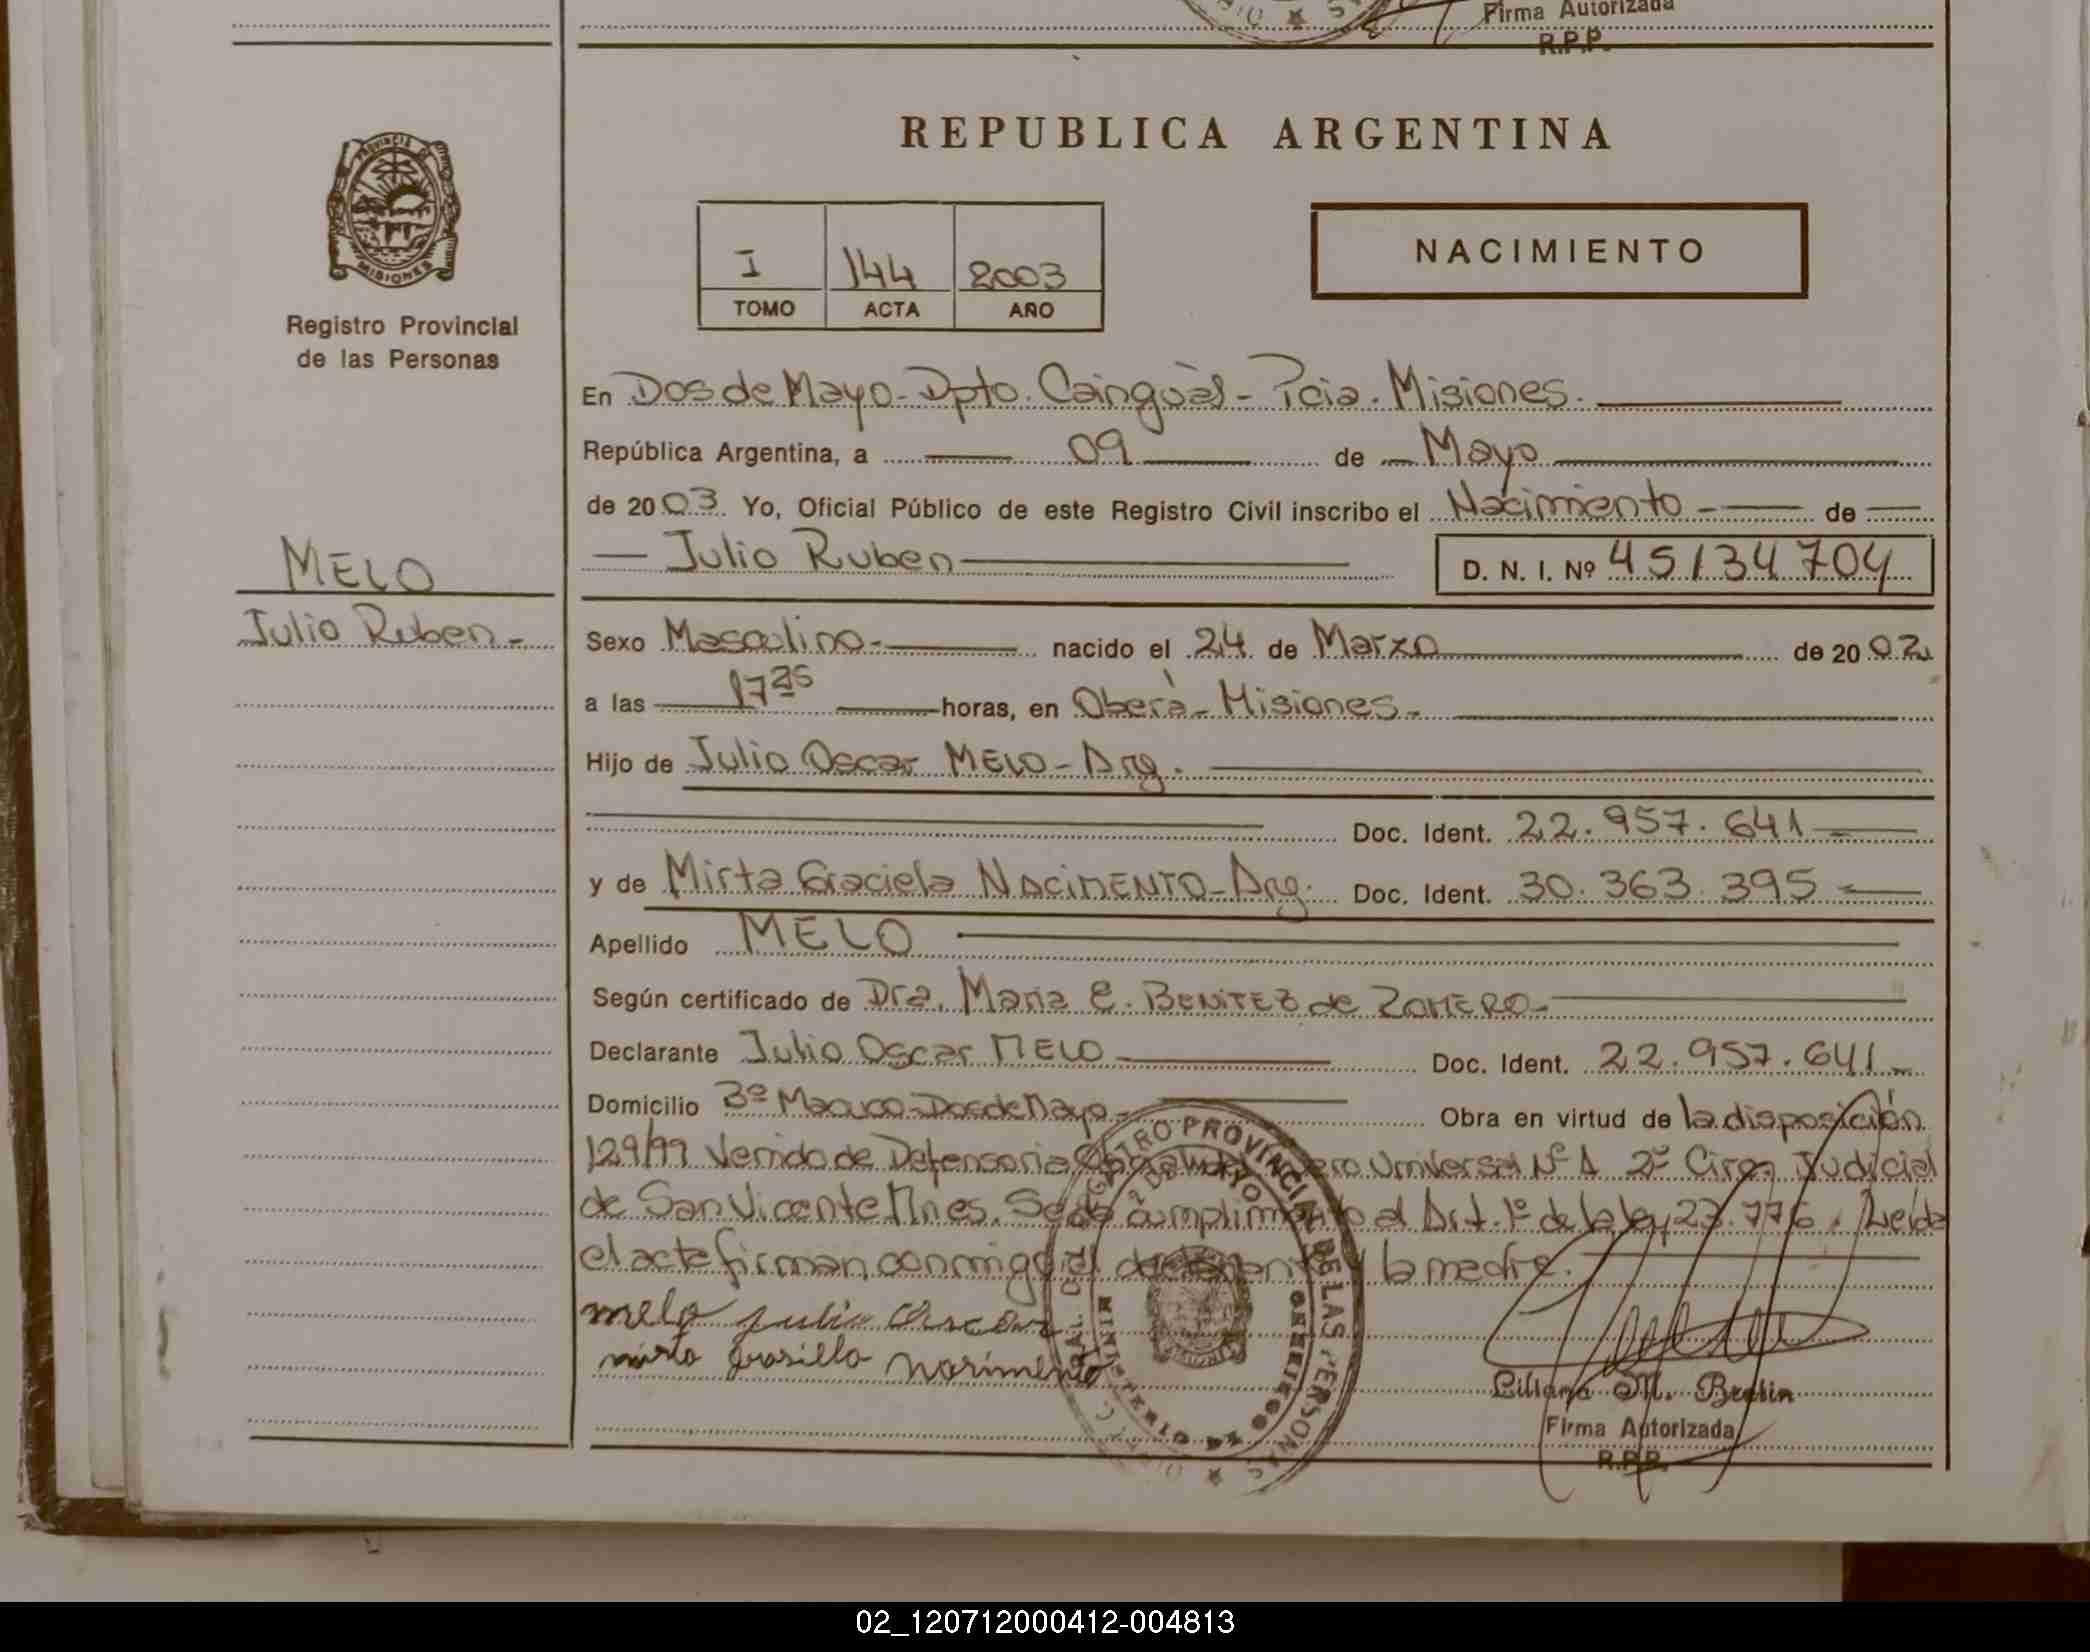 Firma Autorizada
R.P.P.
REPUBLICA ARGENTINA
PROVINCIA DE
MISIONES
Registro Provincial
de las Personas
I 144 2003
TOMO ACTA AÑO
NACIMIENTO
En Dos de Mayo - Dpto. Cainguàs - Pcia. Misiones.
República Argentina, a 09 de Mayo
de 2003. Yo, Oficial Público de este Registro Civil inscribo el Nacimiento - de
Julio Ruben D. N. I. Nº 45134704
MELO
Julio Ruben -
Sexo Masculino - nacido el 24 de Marzo de 2002
a las 17 25 horas, en Oberà - Misiones -
Hijo de Julio Oscar MELO - Arg.
Doc. Ident. 22.957.641
y de Mirta Graciela NACIMENTO - Arg. Doc. Ident. 30.363.395
Apellido MELO
Según certificado de Dra. Maria E. BENITEZ de ROMERO -
Declarante Julio Oscar MELO Doc. Ident. 22.957.641
Domicilio Bº Macuco - Dos de Mayo - Obra en virtud de la disposición
129/99 Venido de Defensoria Universal Nº 1 2º Circ. Judicial
de San Vicente Mnes. Se da cumplimiento al Art. 1º de la ley 23.776. Leida
el acta firman conmigo el declarante y la madre.
melo Julio Oscar
mirta Nacimento
REGISTRO PROVINCIAL DE LAS PERSONAS
2 DE MAYO
MINISTERIO DE GOBIERNO
Liliana M. Brolin
Firma Autorizada
R.P.P.
02_120712000412-004813